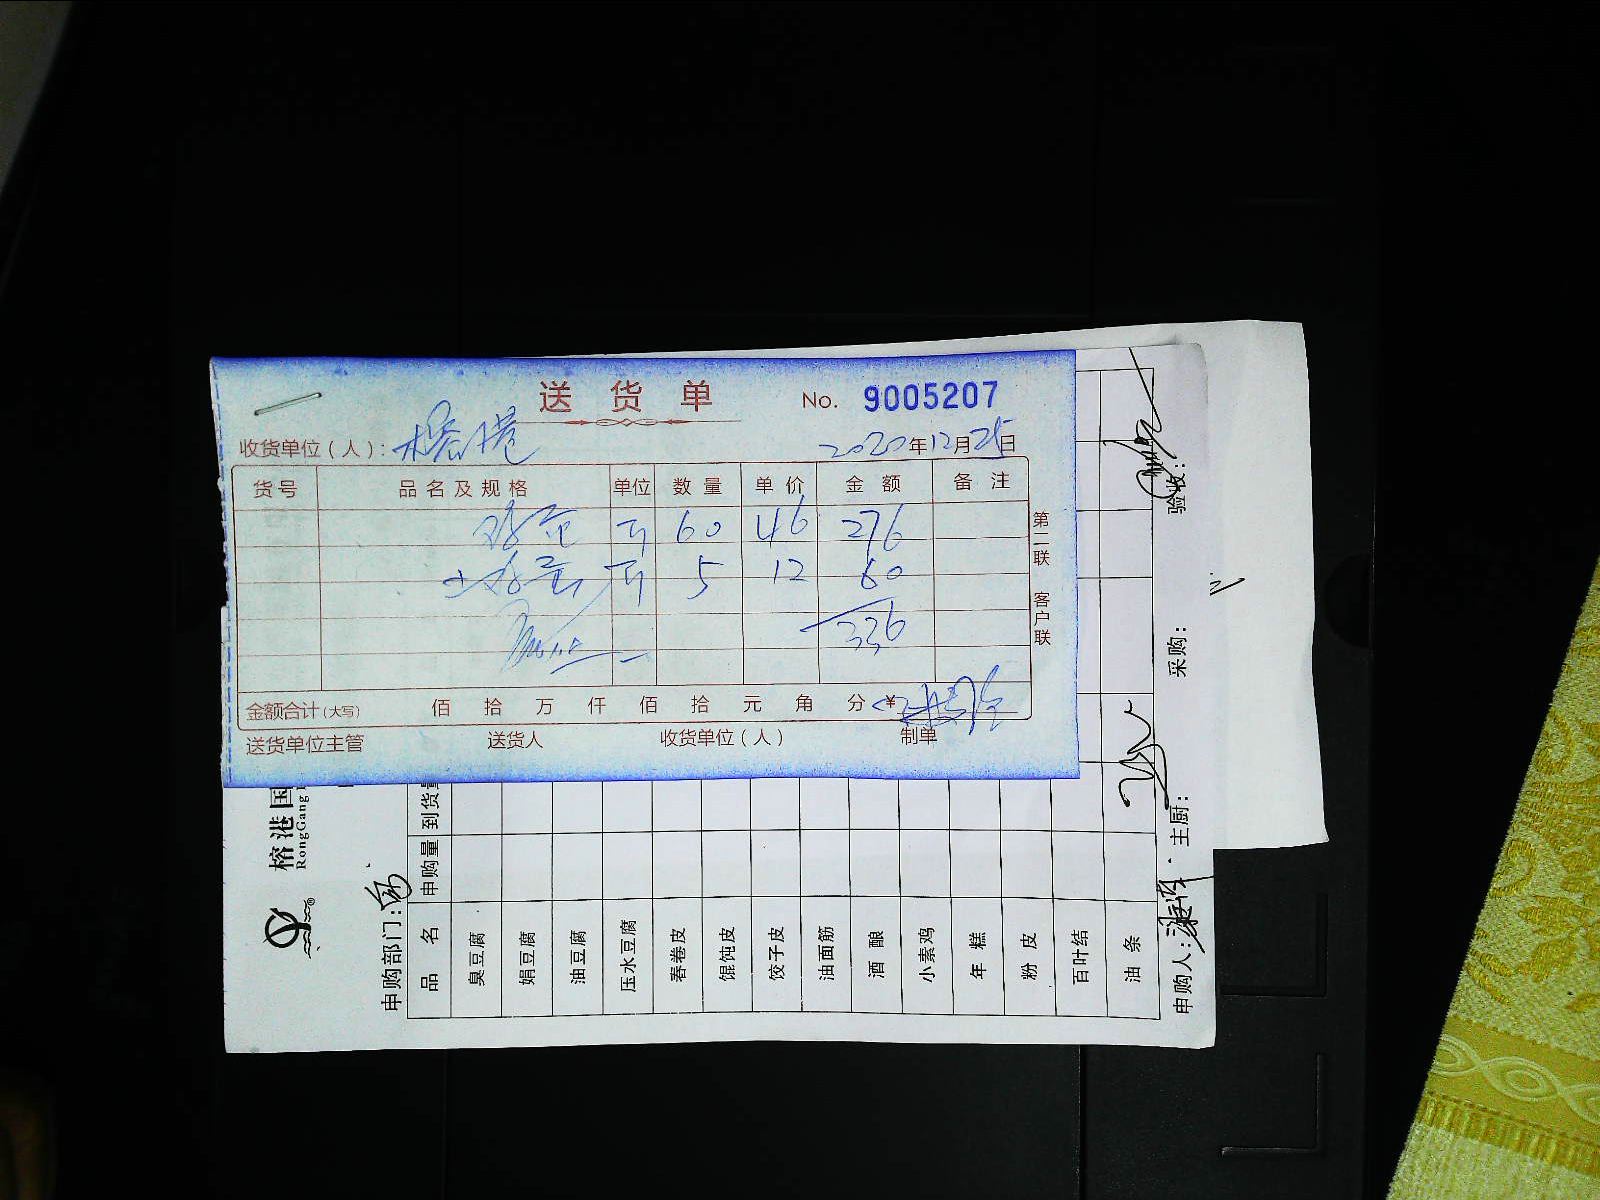 送货单 No. 9005207
收货单位（人）：榕港 2020年12月25日
货号 品名及规格 单位 数量 单价 金额 备注
斤 60 46 276
斤 5 12 60
336
金额合计(大写) 佰 拾 万 仟 佰 拾 元 角 分 ¥
送货单位主管 送货人 收货单位（人） 制单
第二联 客户联
榕港国
RongGang
申购部门：
品名 申购量 到货量
臭豆腐
娟豆腐
油豆腐
压水豆腐
春卷皮
馄饨皮
饺子皮
油面筋
酒酿
小素鸡
年糕
粉皮
百叶结
油条
申购人： 主厨： 采购： 验收：